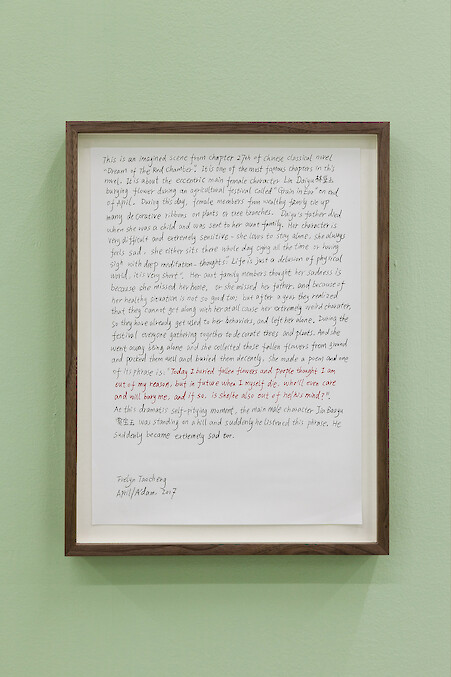 This is an imagined scene from chapter 27th of chinese classical novel
"Dream of The Red Chamber". It is one of the most famous chapters in this
novel. It is about the eccentric main female character Lin Daiyu 林黛玉
burying flower during an agricultural festival called "Grain in Ear" on end
of April. During this day, female members from wealthy family tie up
many decorative ribbons on plants or tree branches. Daiyu's father died
when she was a child and was sent to her aunt family. Her character is
very difficult and extremely sensitive - she loves to stay alone, she always
feels sad. she either sits there whole day crying all the time or having
sigh with deep meditation - thoughts: "Life is just a delusion of physical
world, it is very short". Her aunt family members thought her sadness is
because she missed her home, or she missed her father, and because of
her healthy situation is not so good too; but after a year they realized
that they cannot get along with her at all cause her extremely weird character,
so they have already get used to her behaviors, and left her alone. During the
festival everyone gathering together to decorate trees and plants. And she
went away being alone and she collected those fallen flowers from ground
and packed them well and buried them decently. she made a poem and one
of its phrase is: "Today I buried fallen flowers and people thought I am
out of my reason, but in future when I myself die. who'll even care
and will bury me, and if so. is she/he also out of he/his mind?".
At this dramatic self-pitying moment, the main male character Jia Baoyu
寶玉 was standing on a hill and suddenly he listened this phrase. He
suddenly became extremely sad too.
Evelyn Taocheng
April/A'dam. 2017